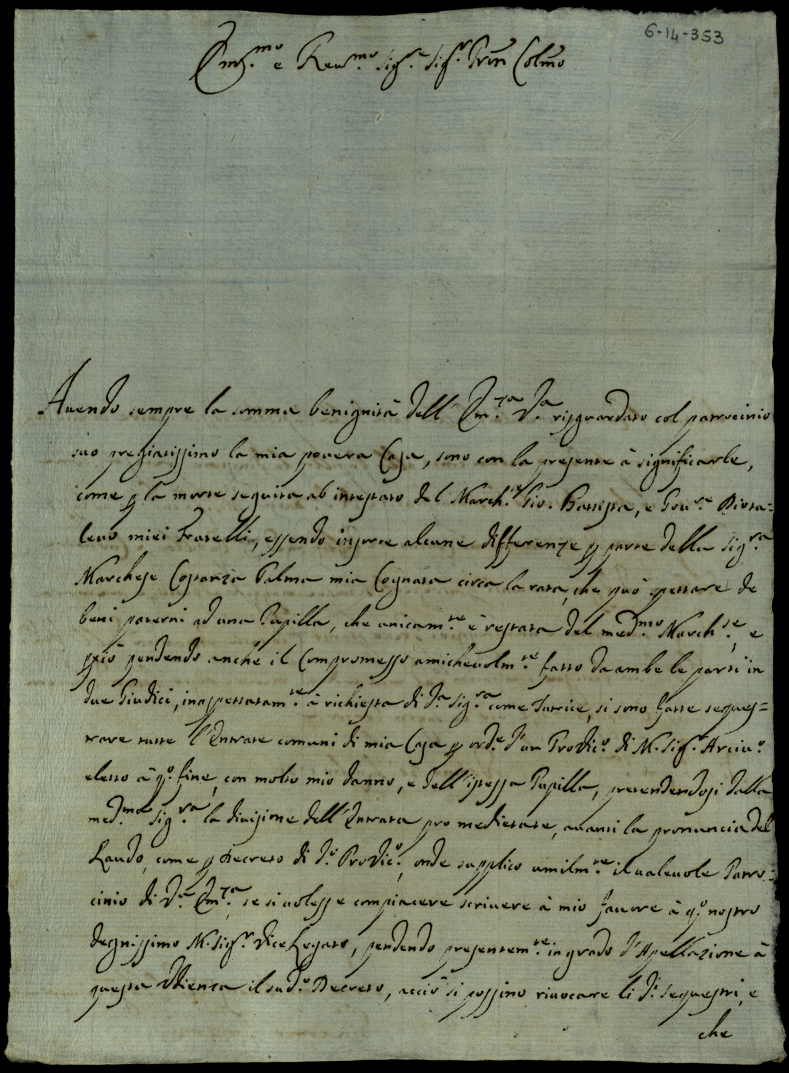 6-14-353
Em.mo e Reu.mo Sig.r Sig.r Pron Colmo
Auendo sempre la somma benignità dell' Em.za V.a risguardato col patrocinio
suo pregiatissimo la mia pouera Casa, sono con la presente à significarle,
come p la morte seguita ab intestato del March.se Gio. Battista, e
leuo miei Fratelli, essendo insorte alcune differenze p parte della Sig.ra
Marchese Costanza Palma mia Cognata circa la rata, che può spettare de
beni paterni ad una Pupilla, che unicam.te è restata del med.mo March.se, e
pciò pendendo anche il Compromesso amicheuolm.te fatto da ambe le parti in
due Giudici, inaspettatam.te à richiesta di d.a Sig.ra come Tutrice, si sono fatte seques=
trare tutte l'Entrate comuni di mia Casa p ord.e d'un Prodic.o di M. Sig.r Arciu.o
eletto à q.o fine, con molto mio danno, e dell'istessa Pupilla, pretendendosi dalla
med.ma Sig.ra la diuisione dell'Entrata pro medietate, auanti la pronuncia del
Laudo, come p decreto di d.o Prodic.o, onde supplico umilm.te il ualeuole Patro=
cinio di V.a Em.za, se si uolesse compiacere scriuere à mio fauore à q.o nostro
degnissimo M. Sig.r ViceLegato, pendendo presentem.te in grado d'Apellazione à
questa Udienza il sud.o Decreto, acciò si possino riuocare li d.i sequestri, e
che